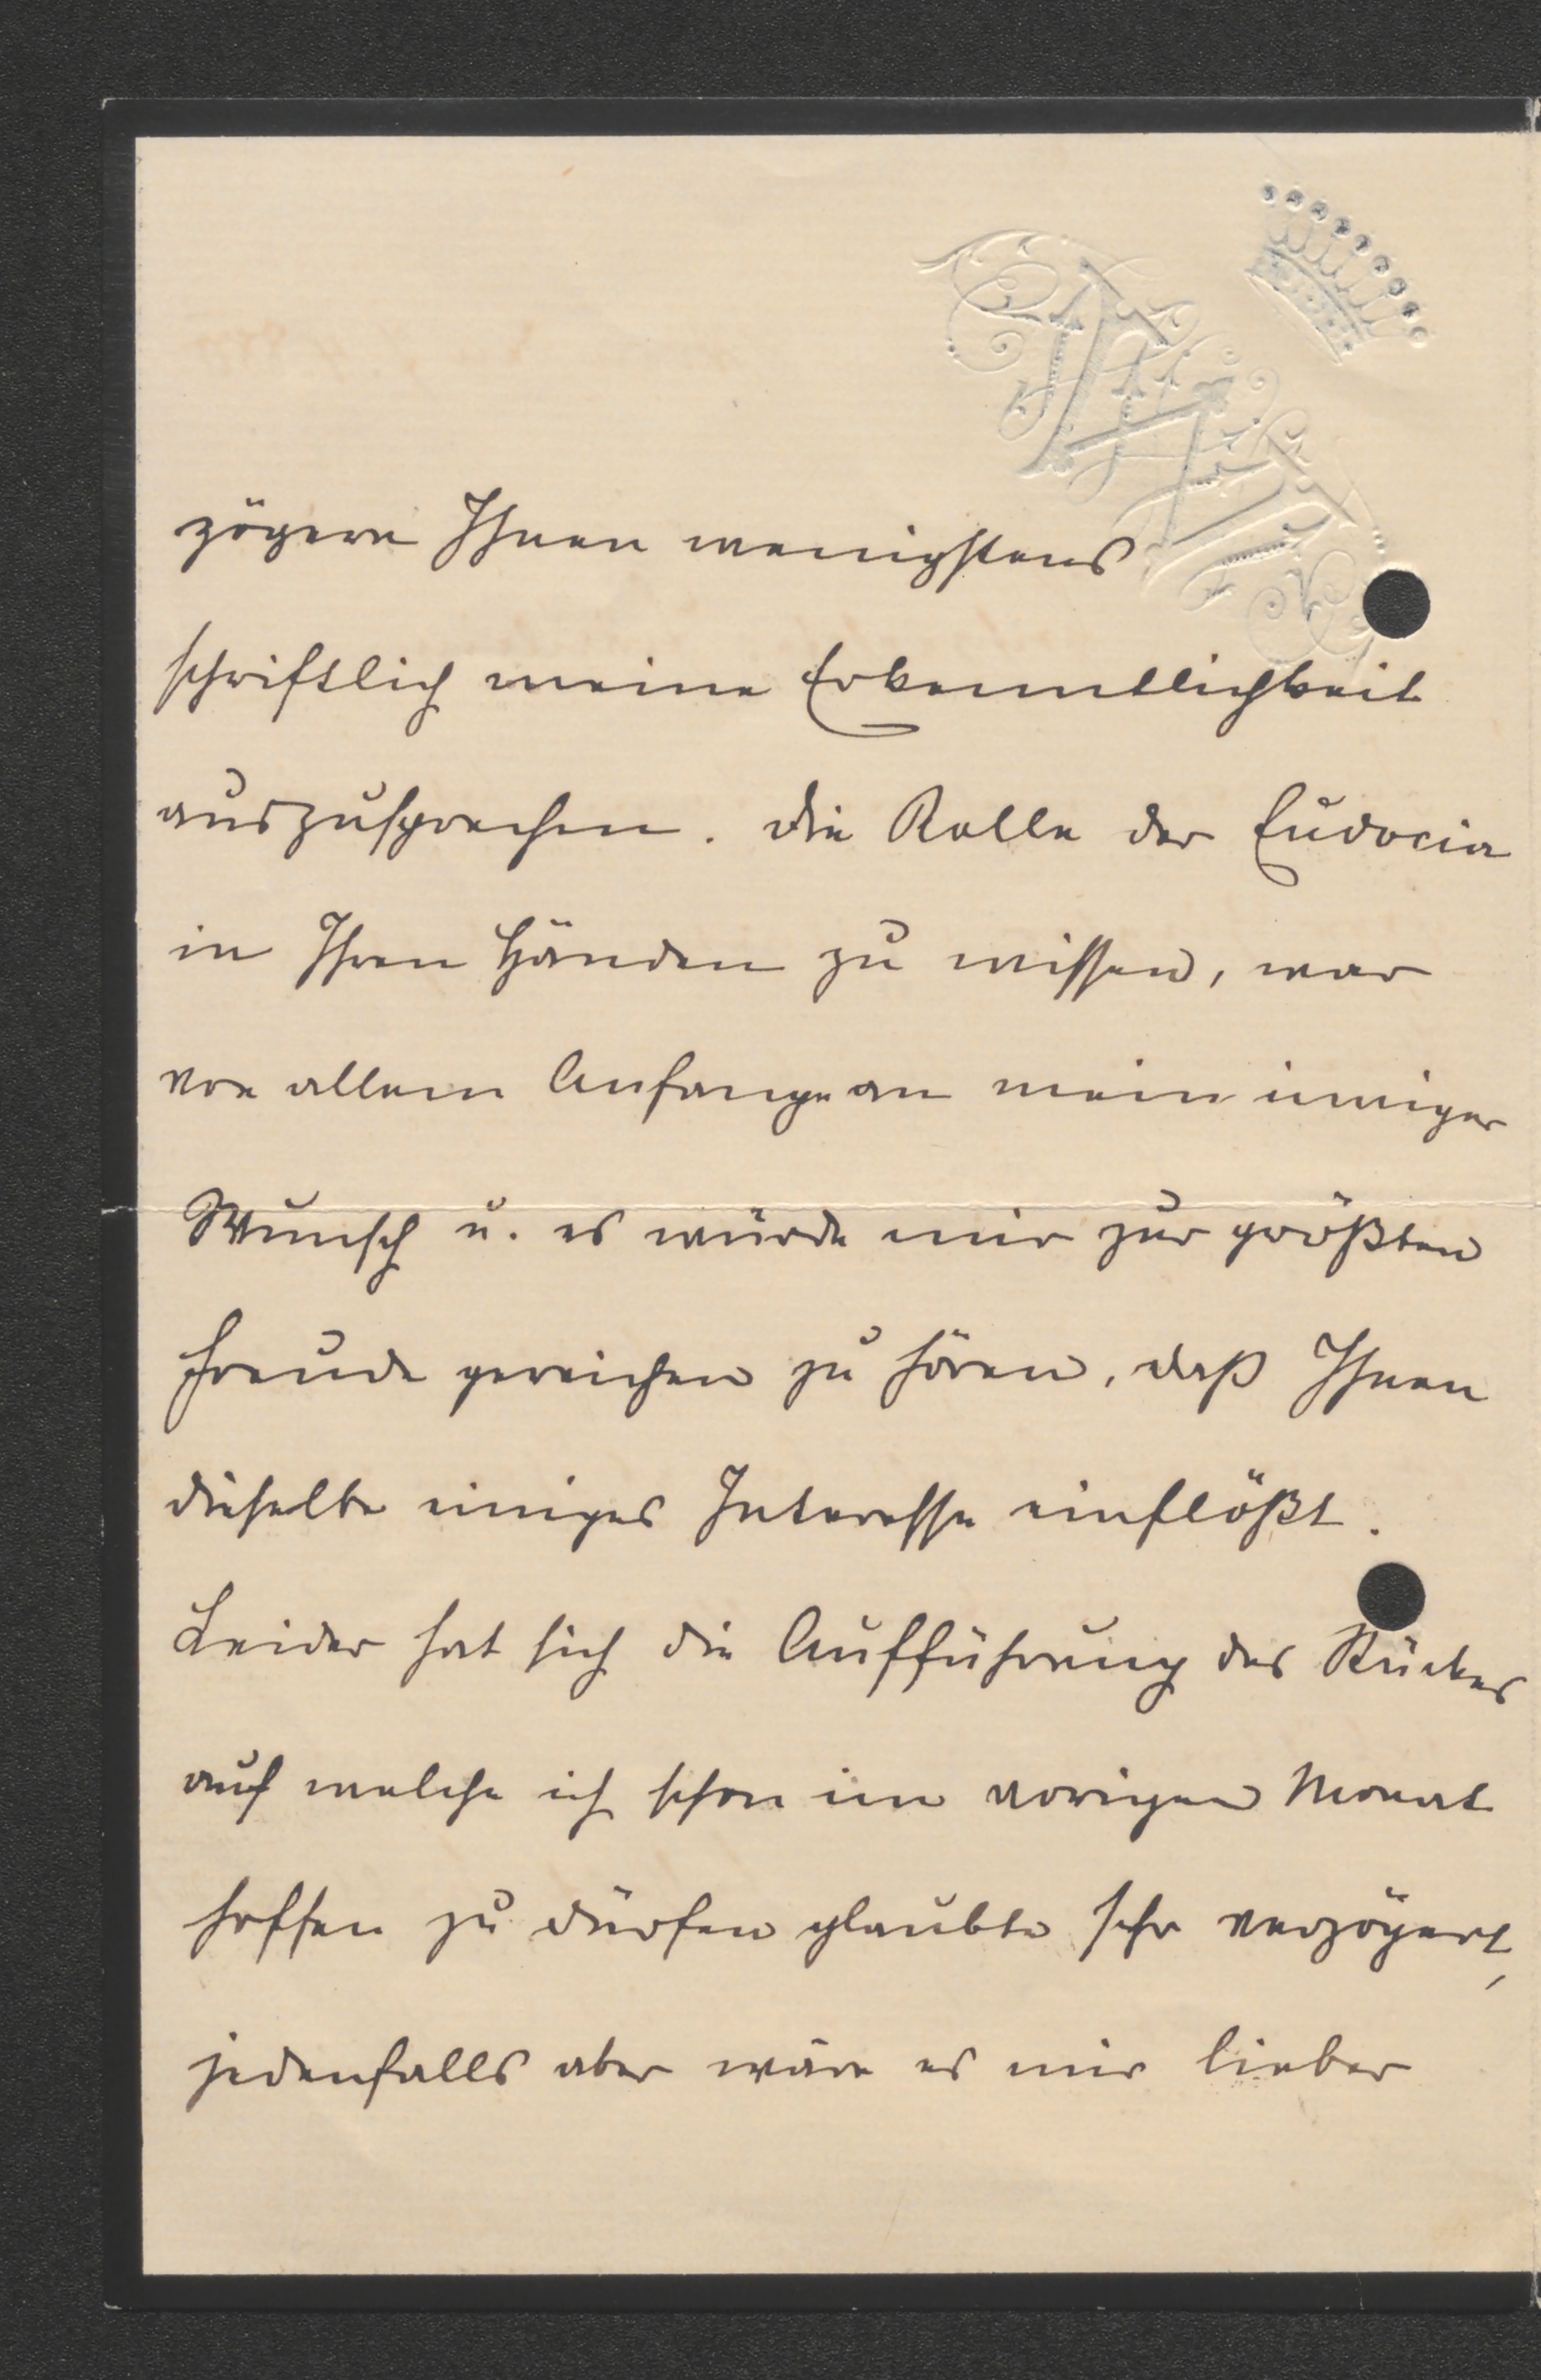 zögern Ihnen wenigstens
schriftlich meine Erkenntlichkeit
auszusprechen. Die Rolle der Eudocia
in Ihren Händen zu wissen, war
von allem Anfange an mein inniger
Wunsch u. es würde mir zur größten
Freude gereichen zu hören, daß Ihnen
dieselbe einiges Interesse einflößt.
Leider hat sich die Aufführung des Stückes
auf welche ich schon im vorigen Monat
hoffen zu dürfen glaubte sehr verzögert,
jedenfalls aber wäre es mir lieber